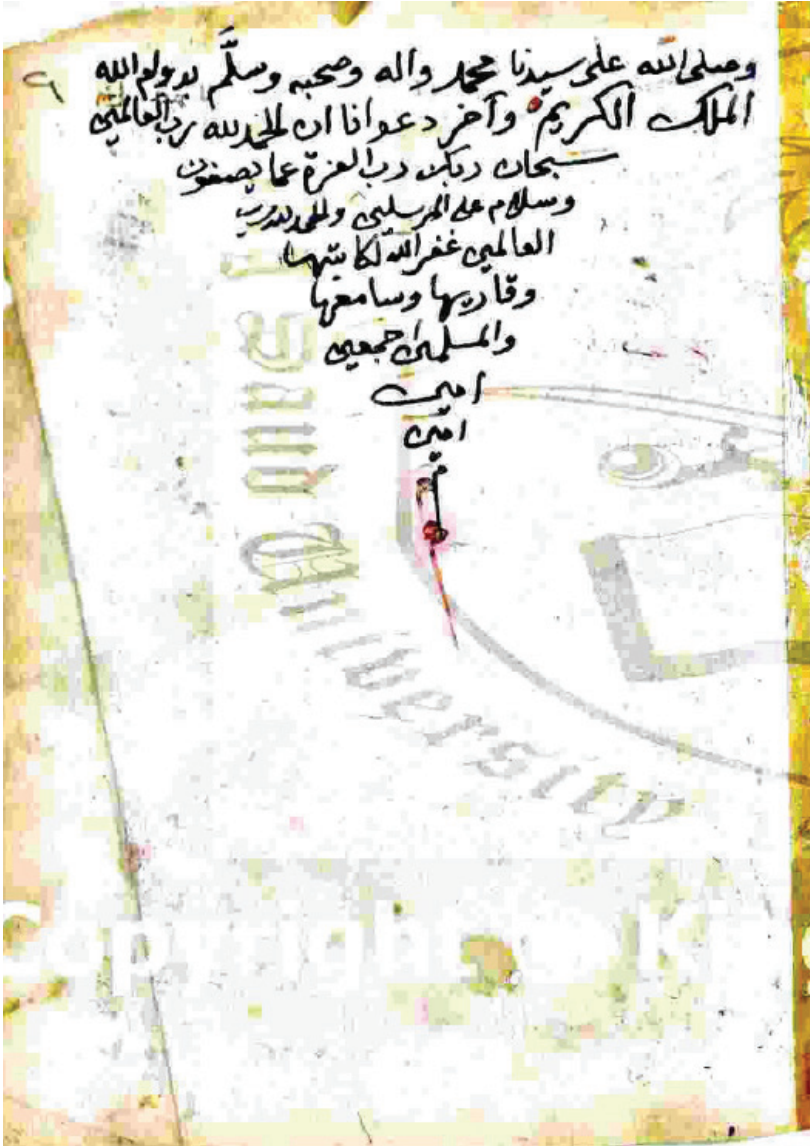 ٩
وصلى الله على سيدنا محمد وآله وصحبه وسلَّم بدوام الله
الملك الكريم وآخر دعوانا ان الحمد لله رب العالمين
سبحان ربك رب العزة عما يصفون
وسلام على المرسلين والحمد لله رب
العالمين غفر الله لكاتبها
وقاريها وسامعها
والمسلمين اجمعين
امين
امين
م
Saud University
Copyright © K